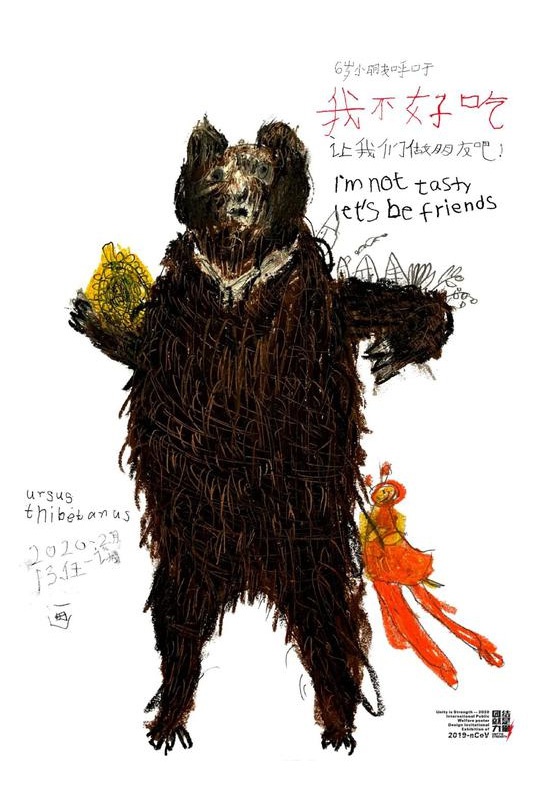 6岁小朋友呼吁
我不好吃
让我们做朋友吧!
I'm not tasty
let's be friends
ursus
thibetanus
2020.2月
画
Unity is Strength — 2020
International Public
Welfare poster
Design Invitational
Exhibition of
2019-nCoV